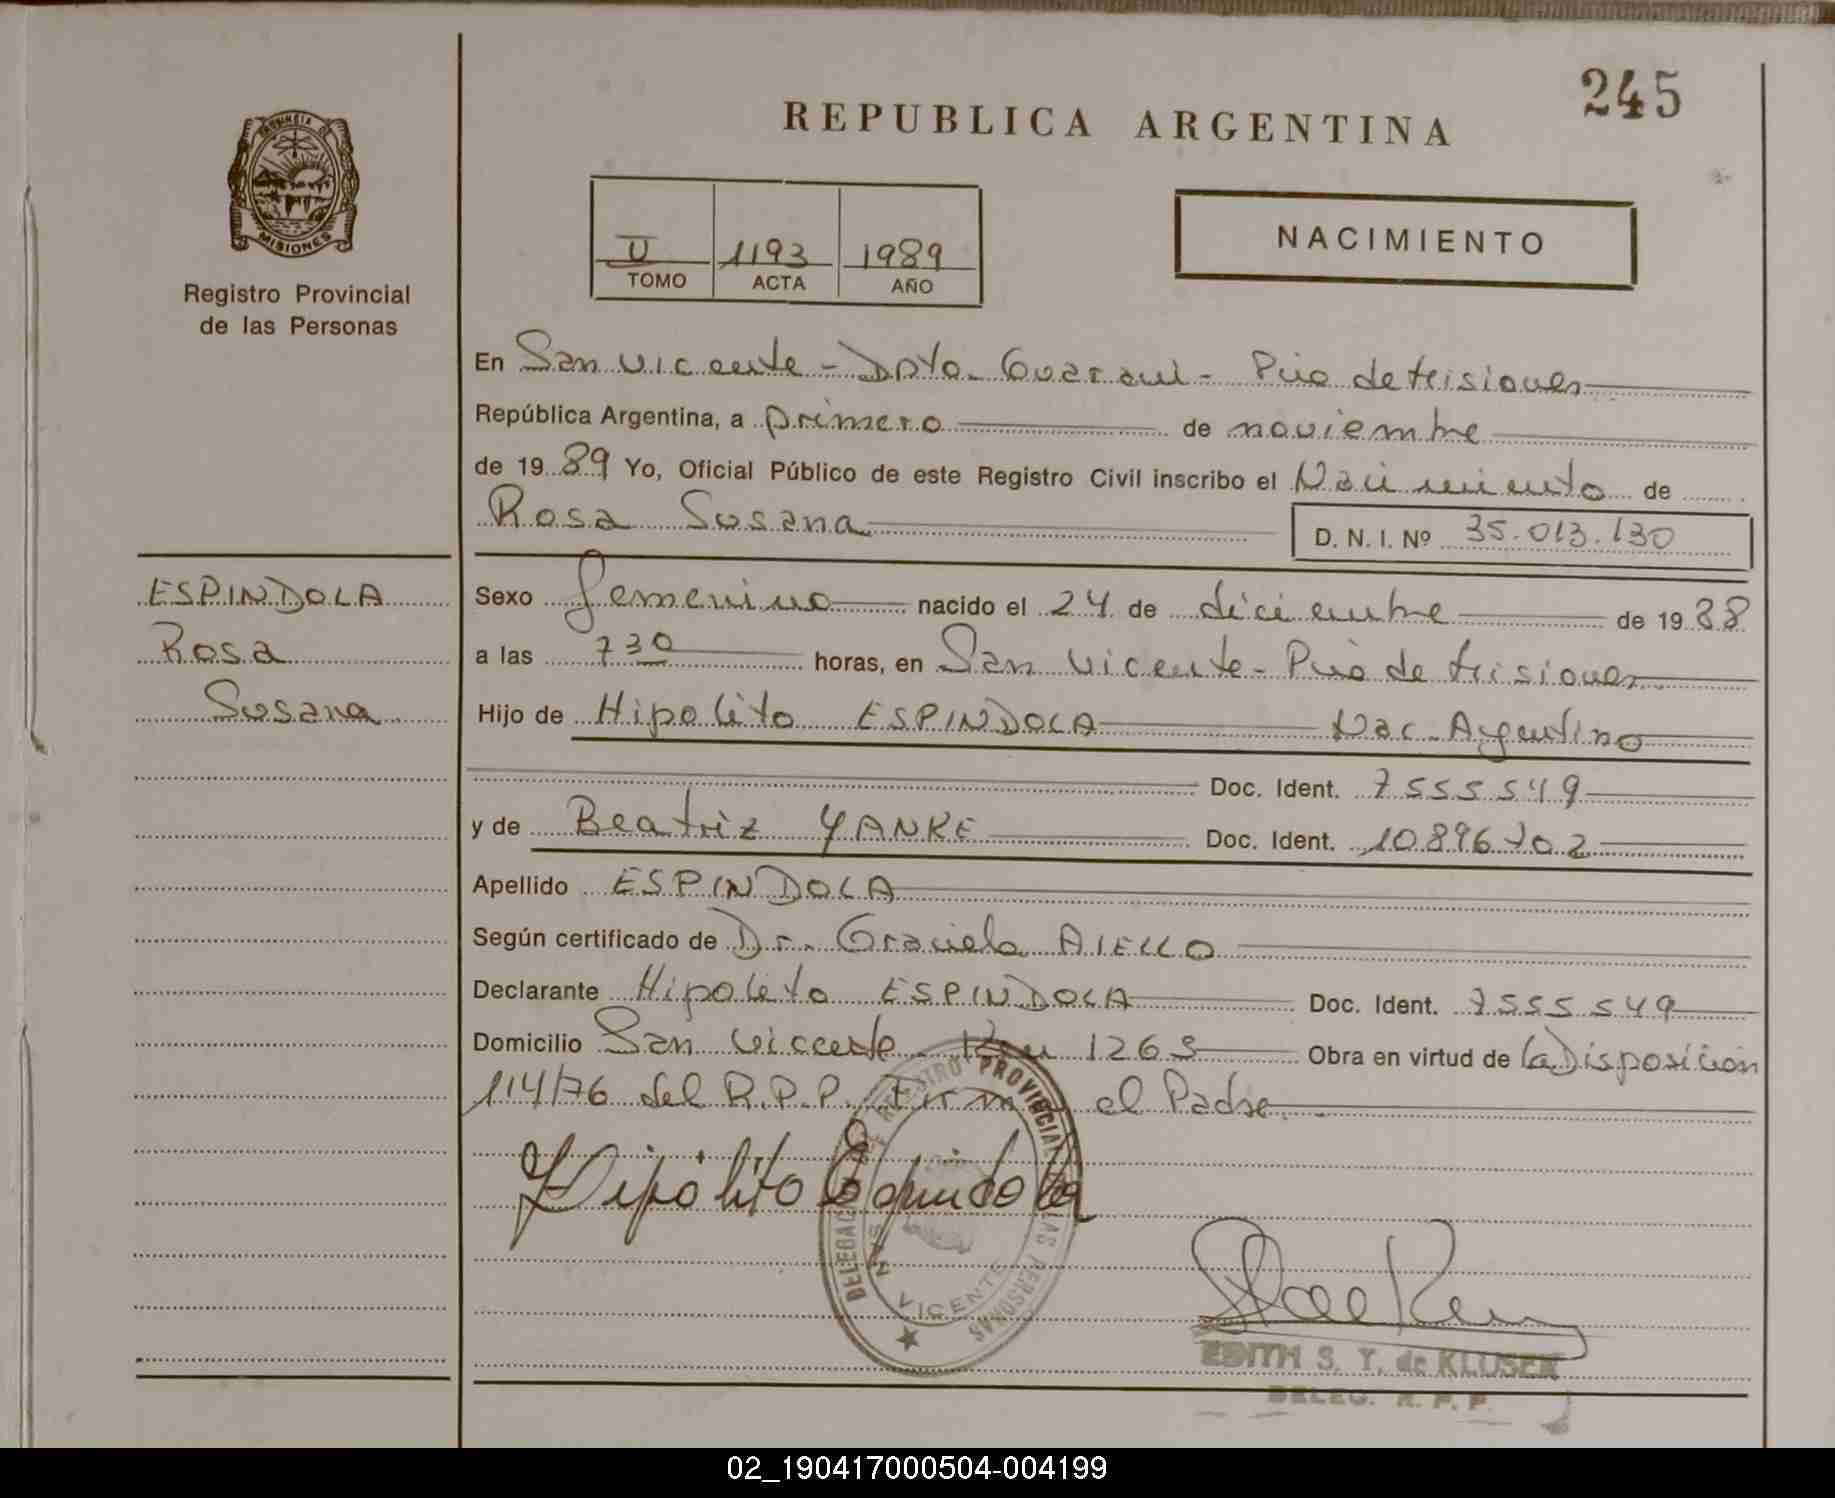 245
REPUBLICA ARGENTINA
PROVINCIA DE
MISIONES
Registro Provincial
de las Personas
II 1193 1989
TOMO ACTA AÑO
NACIMIENTO
En San Vicente - Dpto. Guarani - Pcia de Misiones
República Argentina, a primero de noviembre
de 19 89 Yo, Oficial Público de este Registro Civil inscribo el Nacimiento de
Rosa Susana D. N. I. Nº 35.013.130
ESPINDOLA
Rosa
Susana
Sexo femenino nacido el 24 de diciembre de 19 88
a las 730 horas, en San Vicente - Pcia de Misiones
Hijo de Hipolito ESPINDOLA Nac. Argentino
Doc. Ident. 7555549
y de Beatriz YANKE Doc. Ident. 10896702
Apellido ESPINDOLA
Según certificado de Dr. Graciela AIELLO
Declarante Hipolito ESPINDOLA Doc. Ident. 7555549
Domicilio San Vicente Km 1263 Obra en virtud de la Disposición
114/76 del R.P.P. Firma el Padre
Hipólito Espindola
DELEGACION REGISTRO PROVINCIAL DE LAS PERSONAS
SAN VICENTE
EDITH S. Y. de KLUSER
DELEG. R. P. P.
02_190417000504-004199